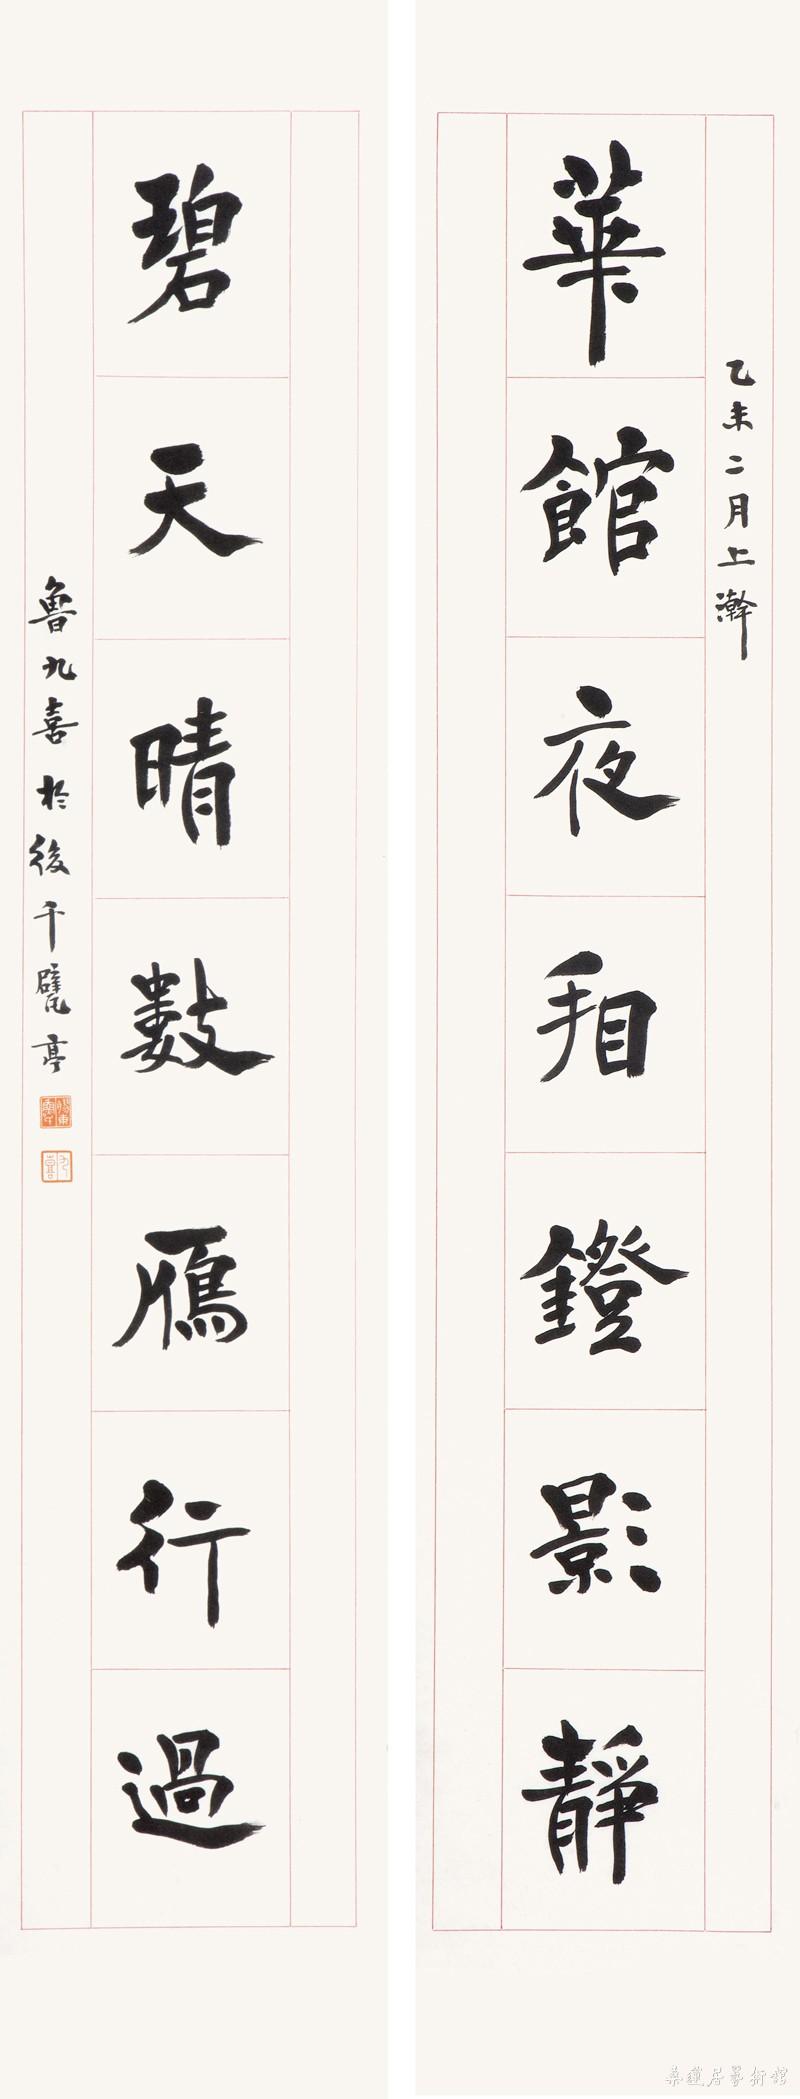 乙未二月上澣
華館夜看鐙影靜
碧天晴數鴈行過
魯九喜於後千甓亭
九喜
桑蓮居藝術館